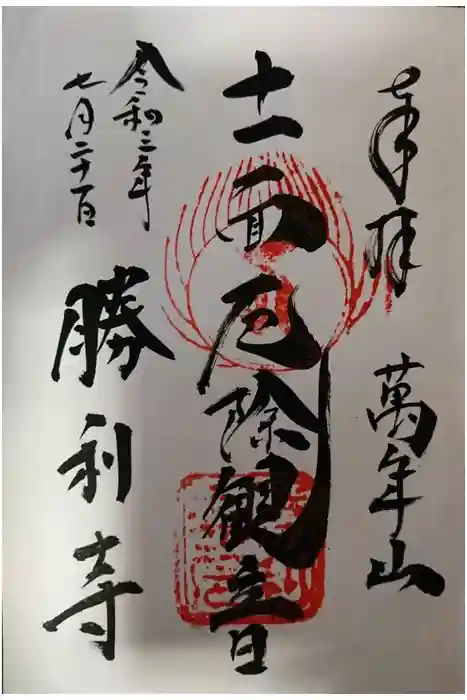 奉拝　萬年山
十一面厄除観音
令和三年
七月二十一日
勝利寺